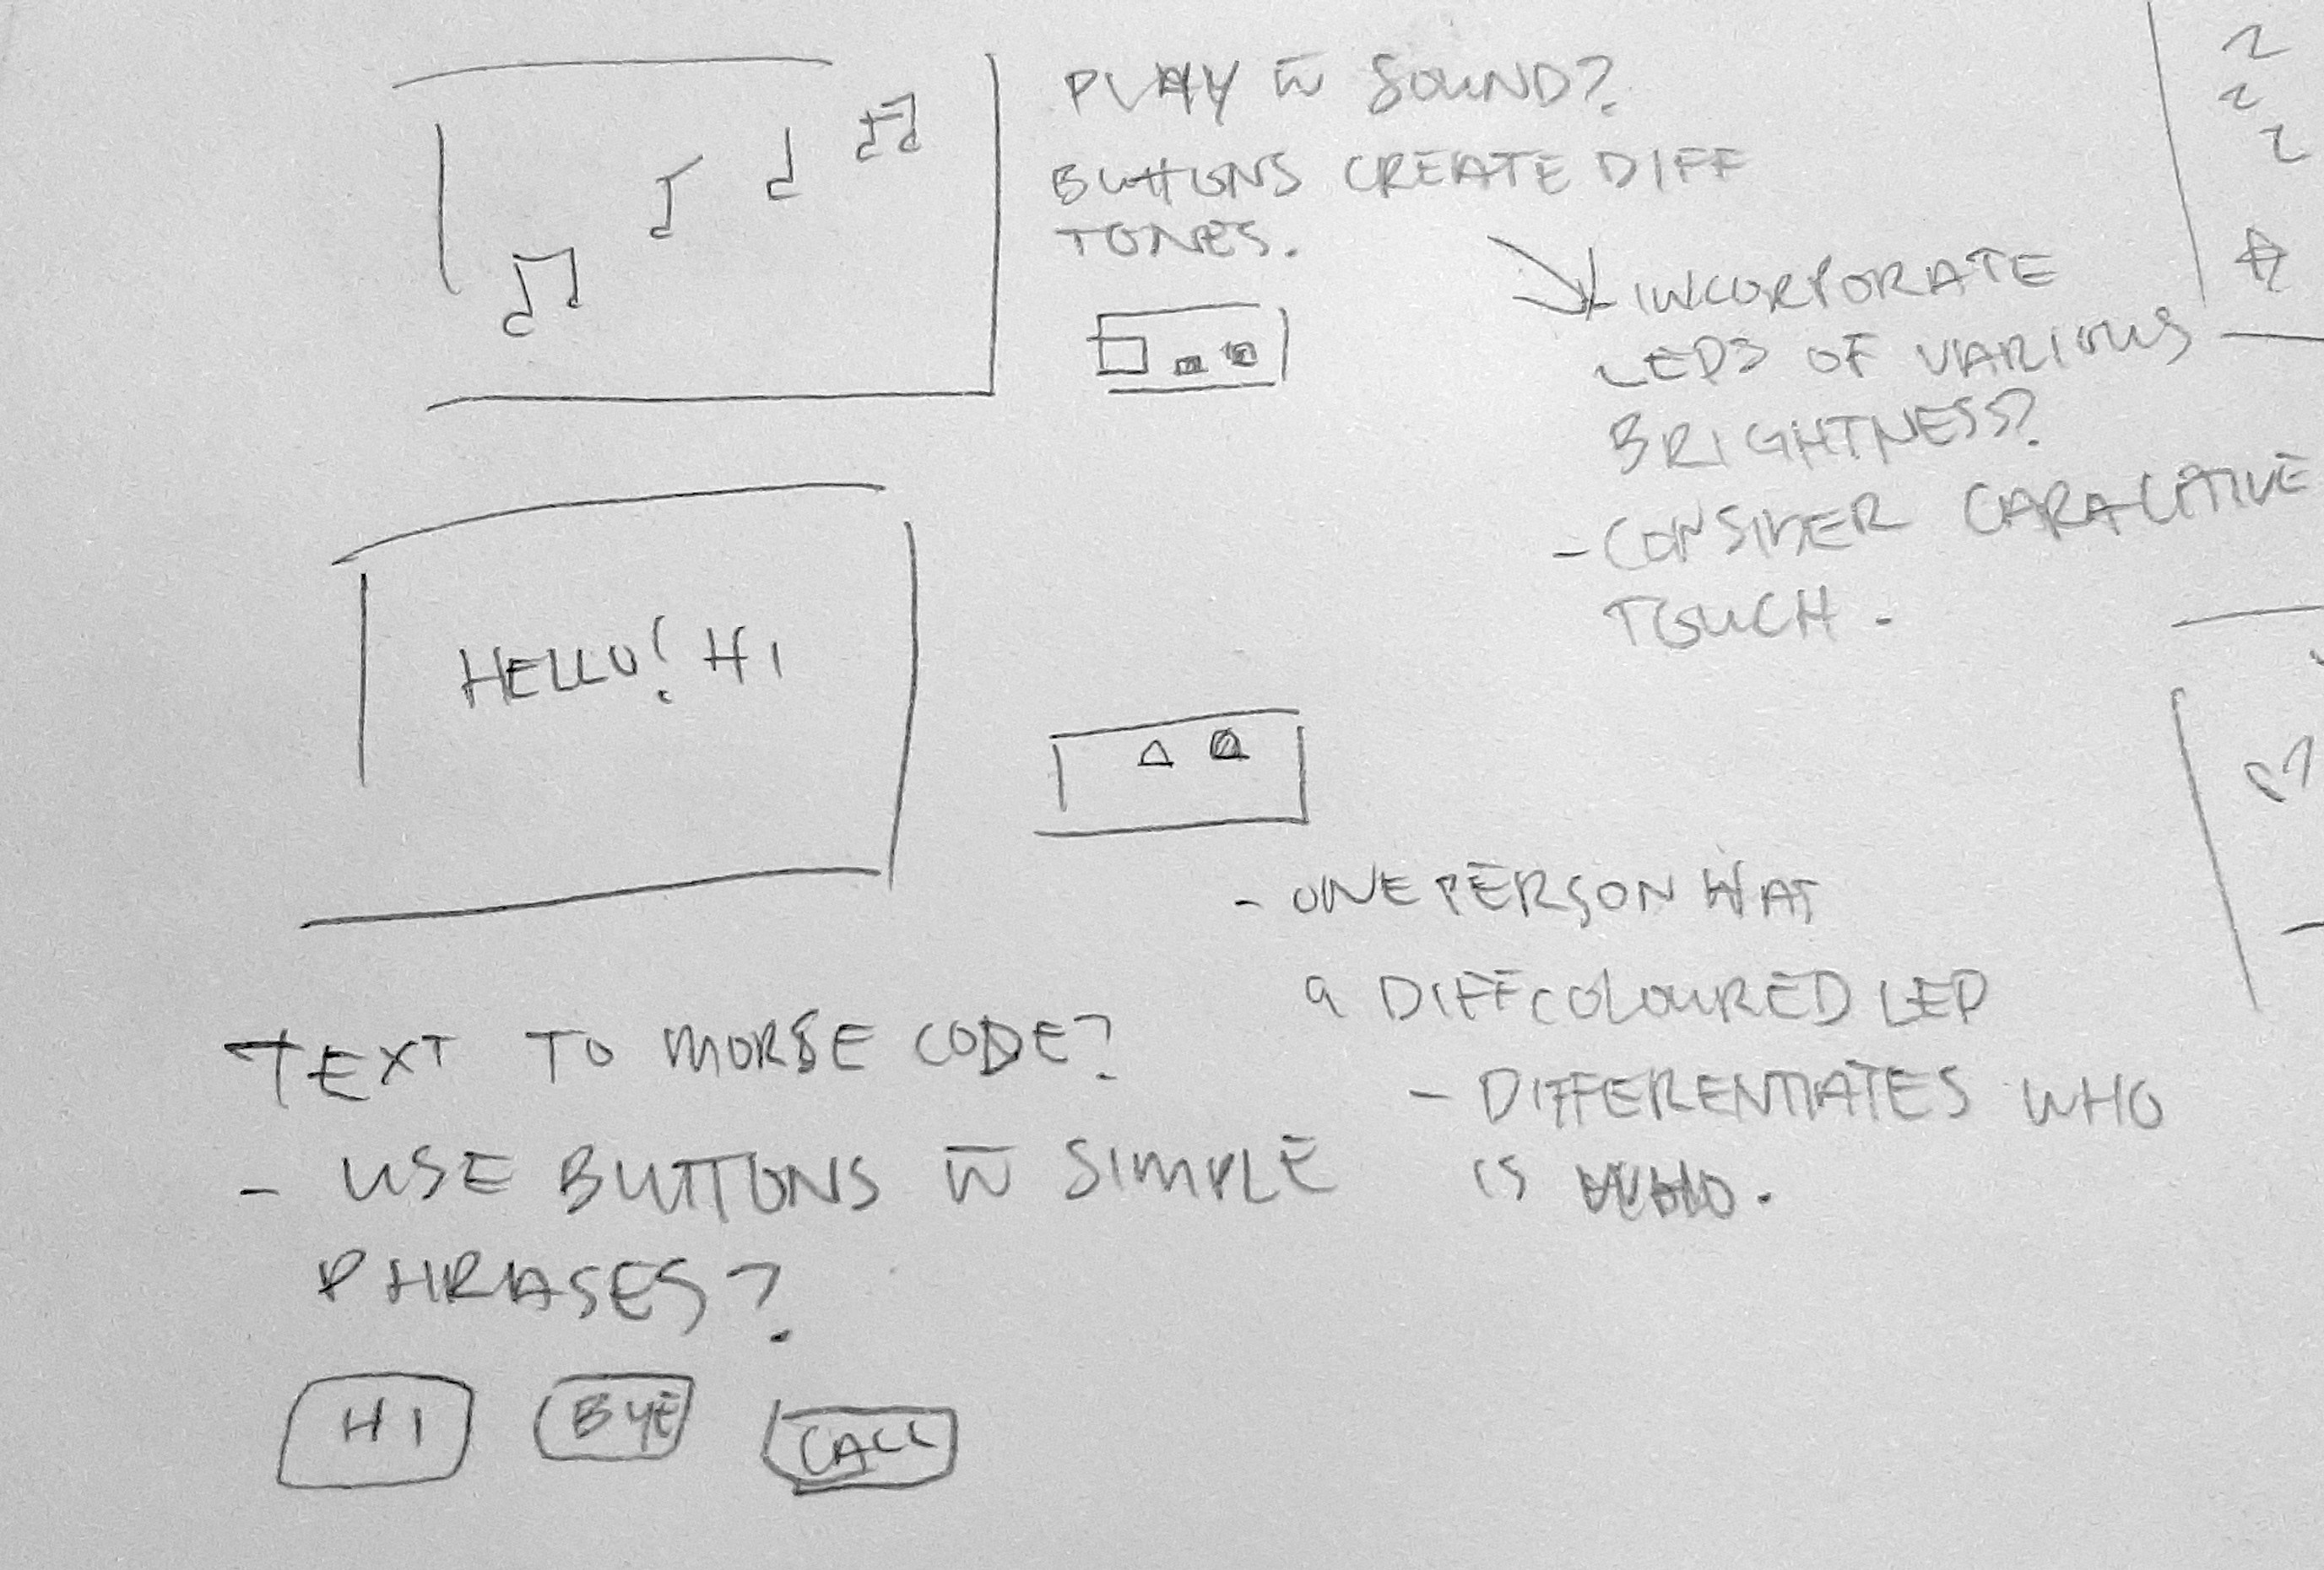 PLAY w̄ SOUND?
BUTTONS CREATE DIFF
TONES.
INCORPORATE
LEDS OF VARIOUS
BRIGHTNESS?
- CONSIDER CAPACITIVE
TOUCH.
HELLO! HI
- ONE PERSON HAS
a DIFF COLOURED LED
- DIFFERENTIATES WHO
IS WHO.
TEXT TO MORSE CODE?
- USE BUTTONS w̄ SIMPLE
PHRASES?
HI BYE CALL